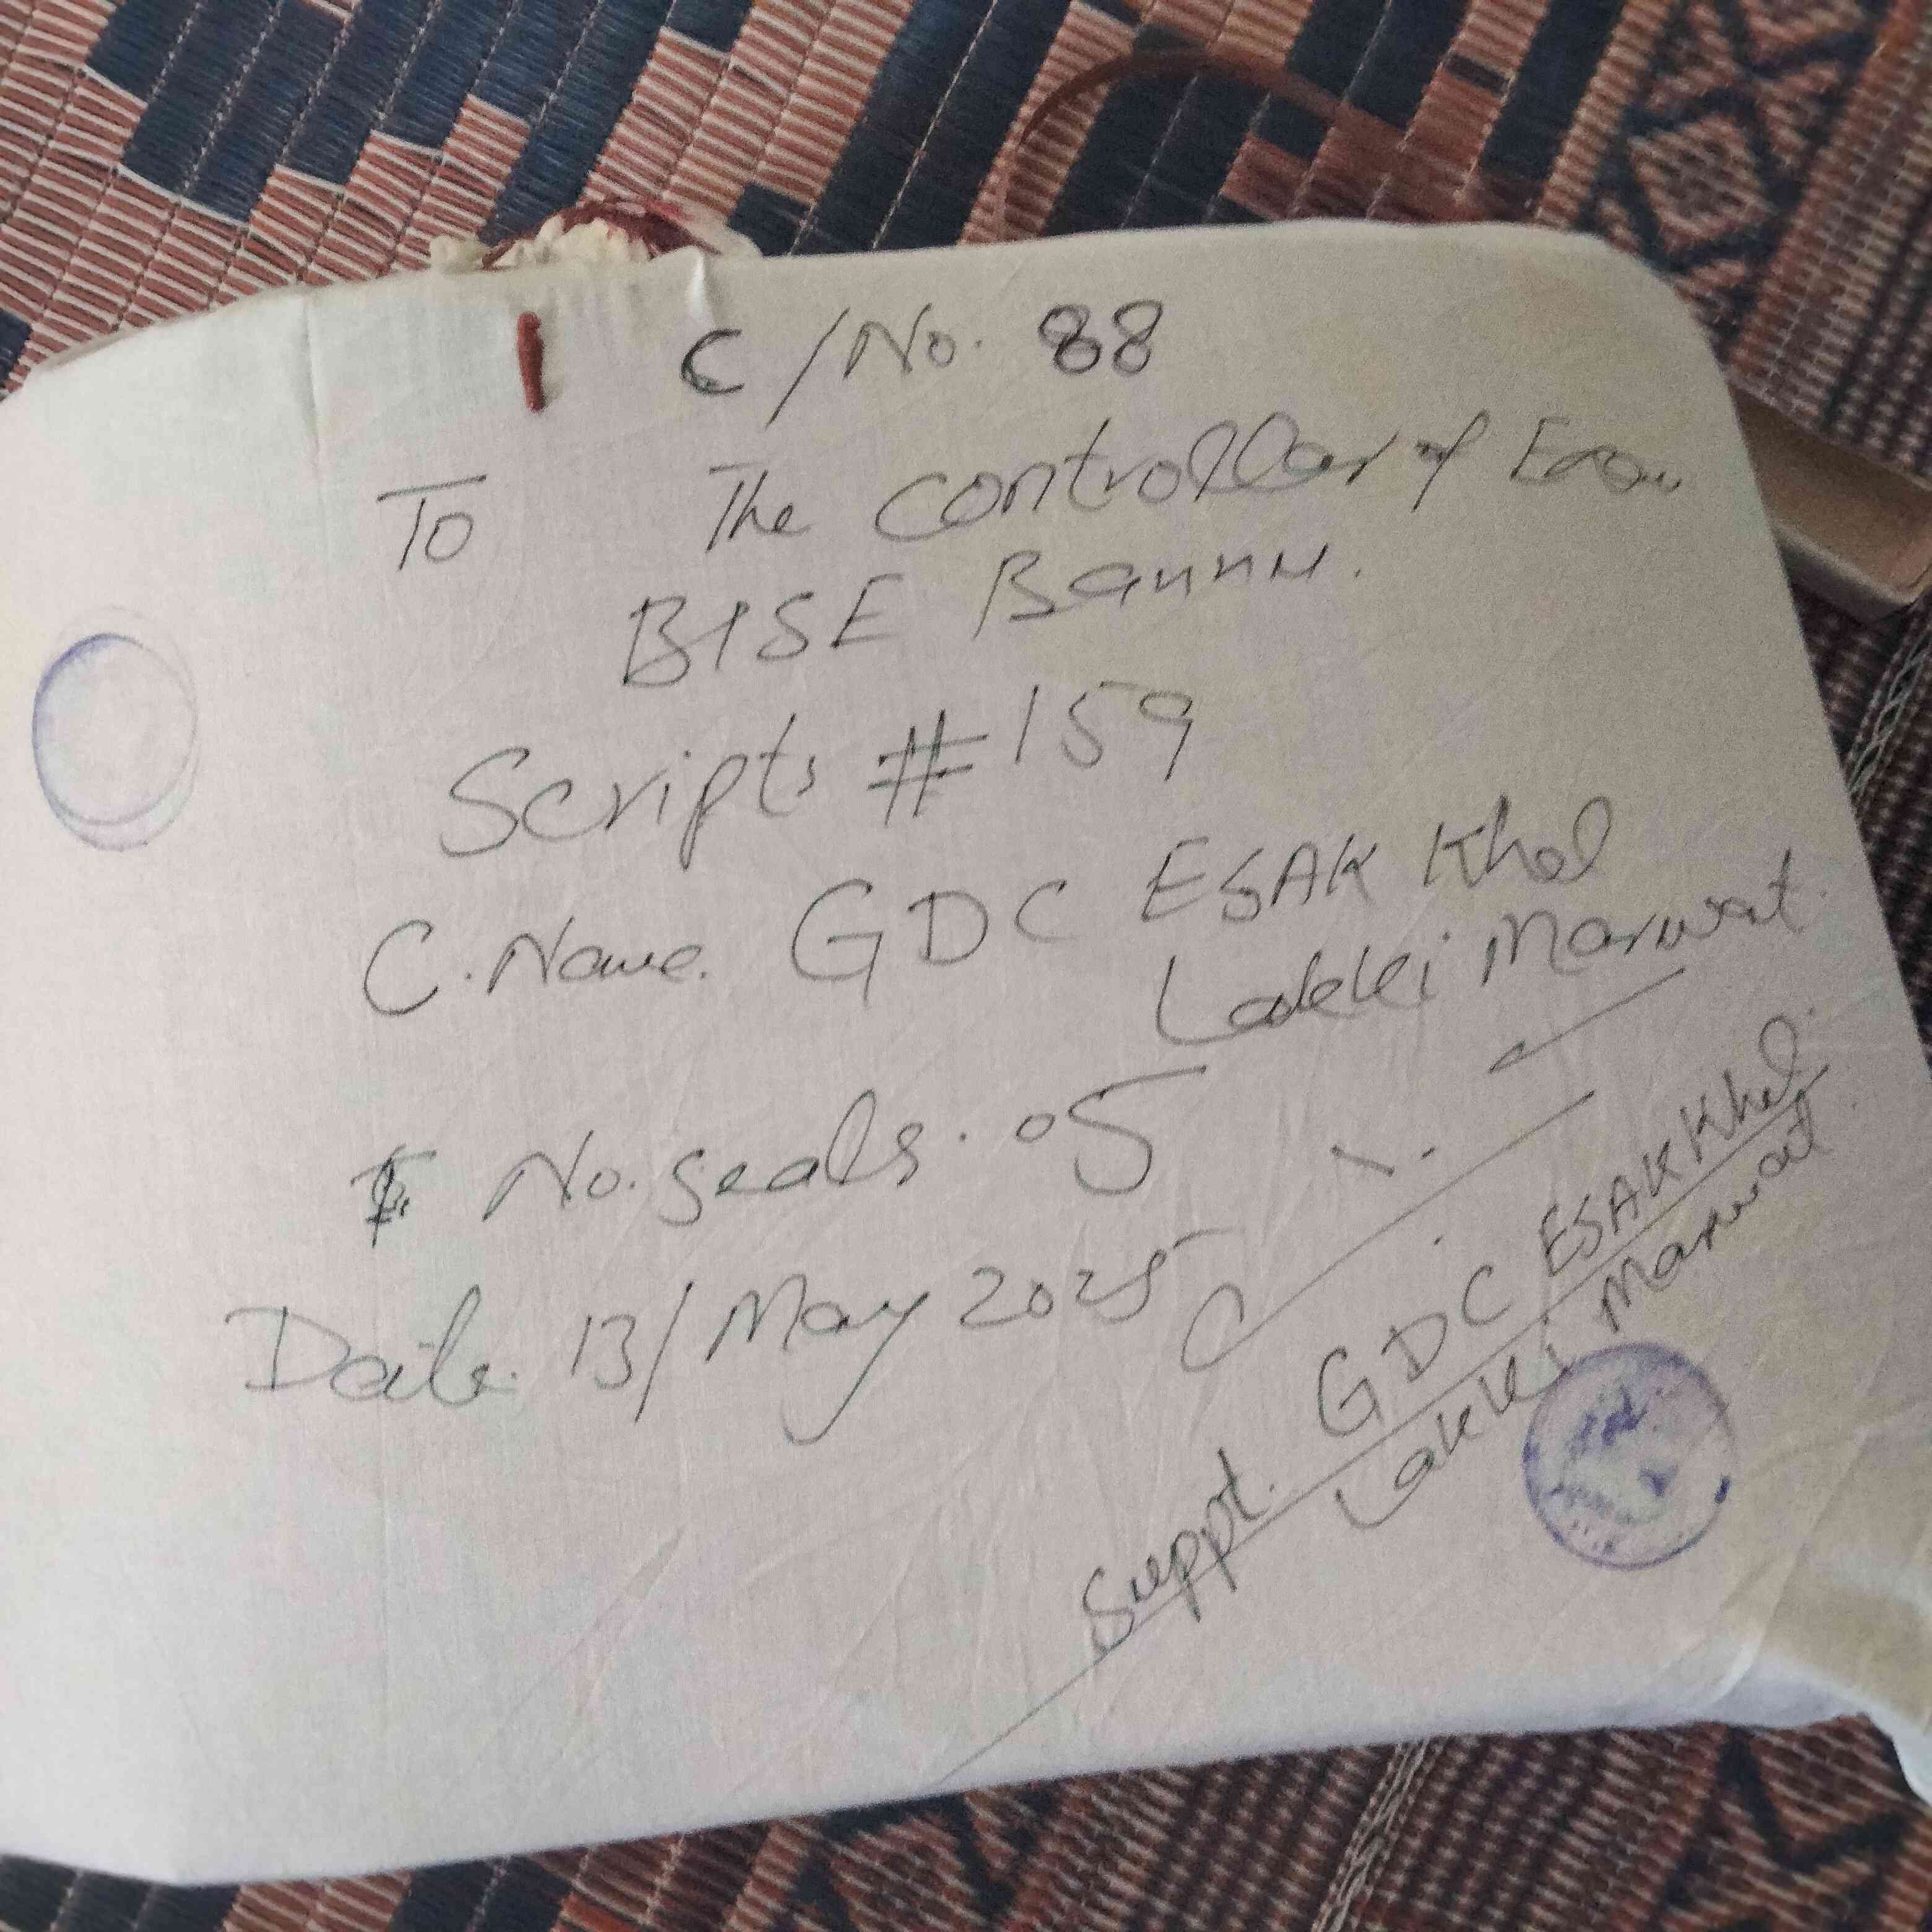 C/No. 88
To The Controller of Exam
BISE Bannu.
Scripts # 159
C.Name. GDC ESAK Khel
Lakki Marwat.
No. Seals. 05
Date. 13/May 2025
Suppt. GDC ESAK Khel
Lakki Marwat.